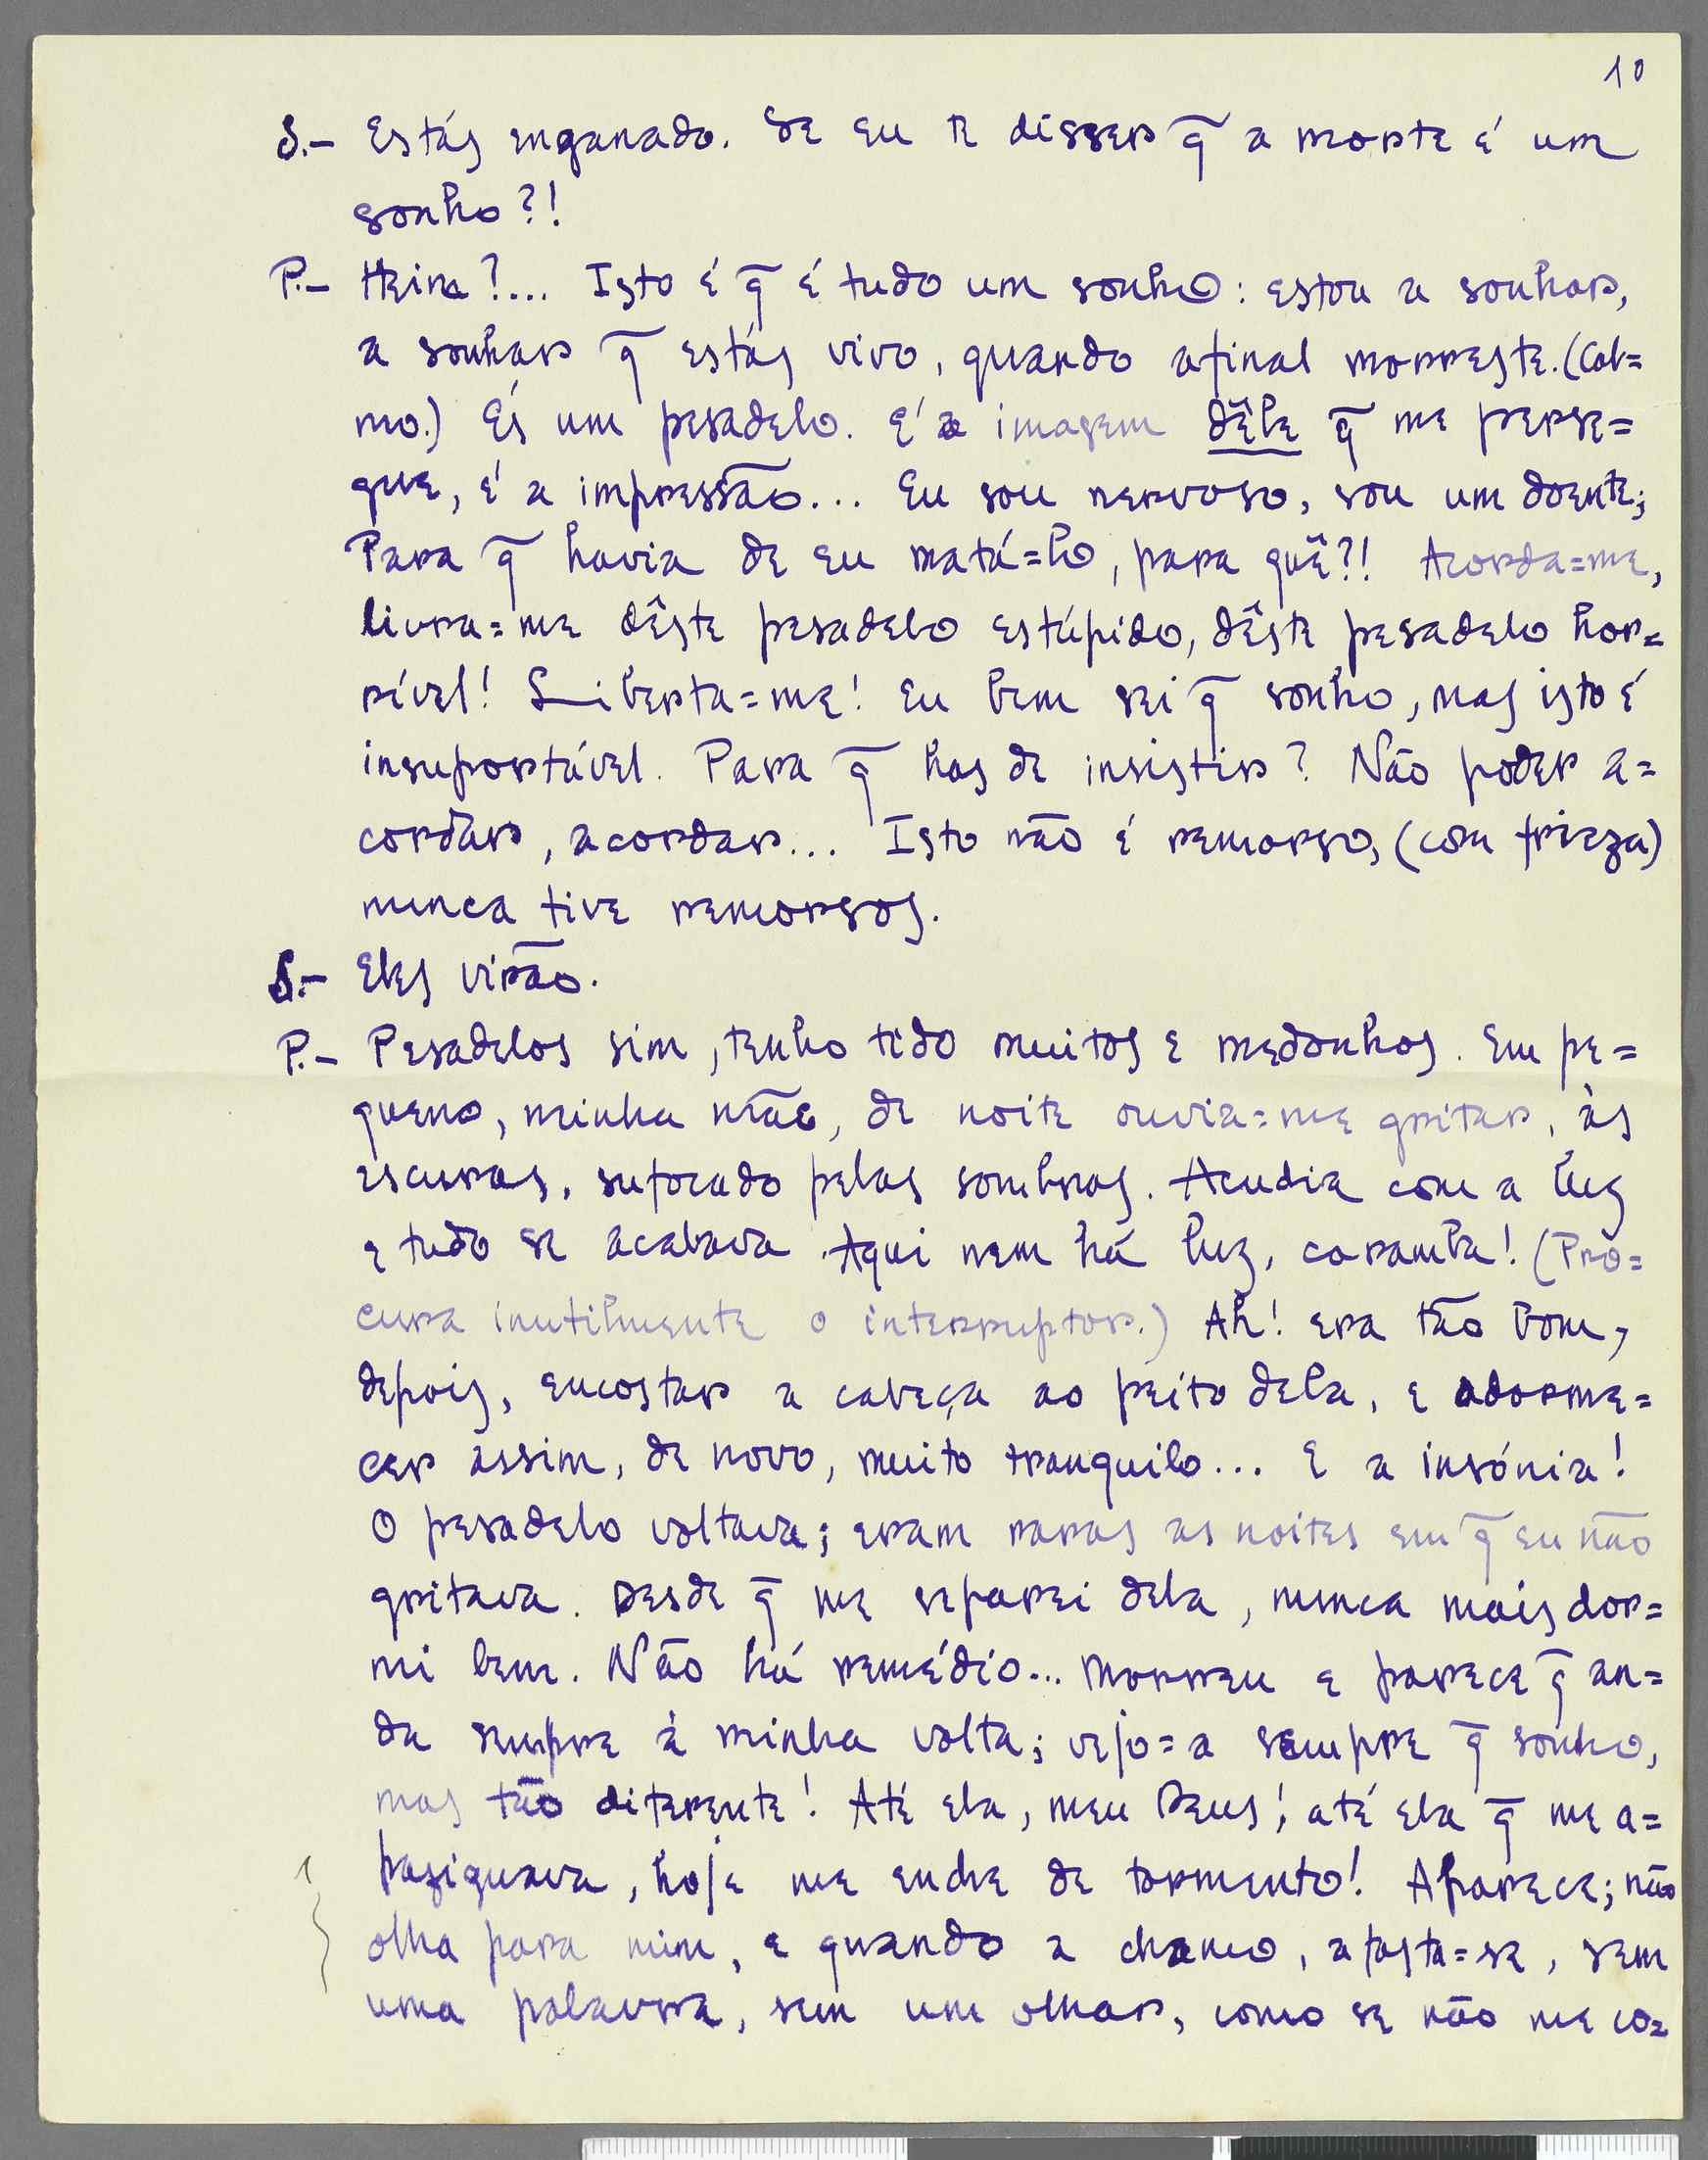 10
S.- Estás enganado. Se eu te disser q̃ a morte é um
sonho?!
P.- Hein?... Isto é q̃ é tudo um sonho: estou a sonhar,
a sonhar q̃ estás vivo, quando afinal morreste. (Cal=
mo.) És um pesadelo. É a imagem dêle q̃ me perse=
gue, é a impressão... Eu sou nervoso, sou um doente;
Para q̃ havia de eu matá=lo, para quê?! Acorda=me,
livra=me dêste pesadelo estúpido, dêste pesadelo hor=
rível! Liberta=me! Eu bem sei q̃ sonho, mas isto é
insuportável. Para q̃ has de insistir? Não poder a=
cordar, acordar... Isto não é remorso, (com frieza)
nunca tive remorsos.
S.- Eles virão.
P.- Pesadelos sim, tenho tido muitos e medonhos. Em pe=
queno, minha mãe, de noite ouvia=me gritar, às
escuras, sufocado pelas sombras. Acudia com a luz
e tudo se acabava. Aqui nem há luz, caramba! (Pro=
cura inutilmente o interruptor.) Ah! era tão bom,
depois, encostar a cabeça ao peito dela, e adorme=
cer assim, de novo, muito tranquilo... E a insónia!
O pesadelo voltava; eram raras as noites em q̃ eu não
gritava. Desde q̃ me separei dela, nunca mais dor=
mi bem. Não há remédio... Morreu e parece q̃ an=
da sempre à minha volta; vejo=a sempre q̃ sonho,
mas tão diferente! Até ela, meu Deus! até ela q̃ me a=
paziguava, hoje me enche de tormento! Aparece; não
olha para mim, e quando a chamo, afasta=se, sem
uma palavra, sem um olhar, como se não me co=